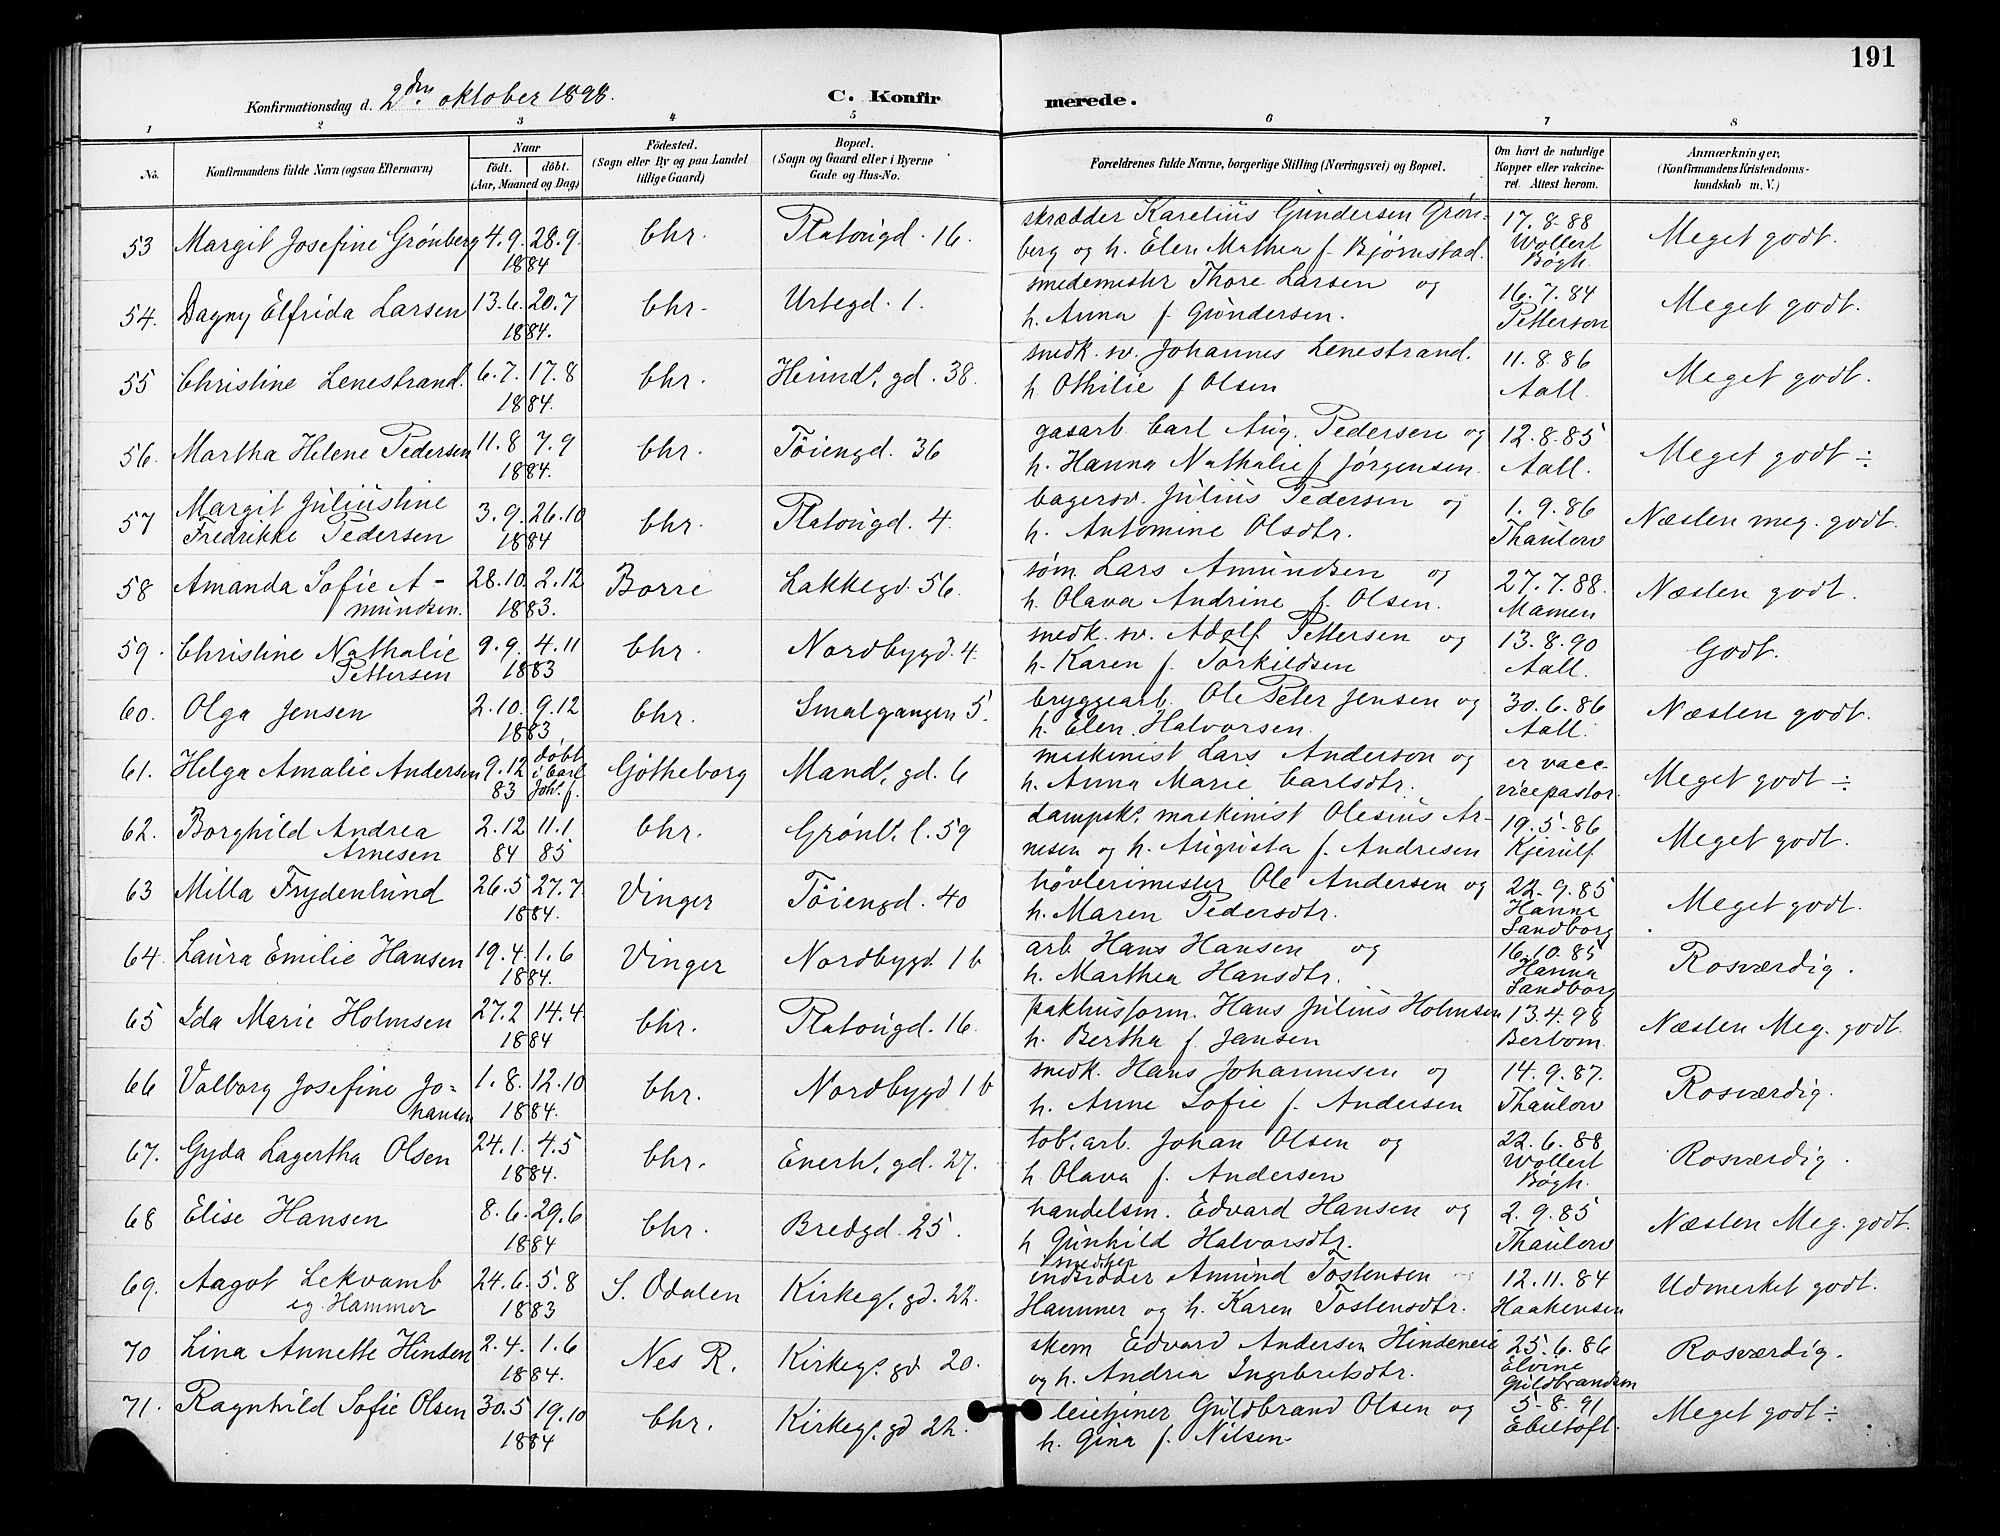 191
Konfirmationsdag d. 2den oktober 1898.
C. Konfirmerede.
1 2 3 4 5 6 7 8
No.
Konfirmandens fulde Navn (ogsaa Efternavn)
Naar
födt. döbt.
(Aar, Maaned og Dag)
Födested.
(Sogn eller By og paa Landet
tillige Gaard)
Bopæl.
(Sogn og Gaard eller i Byerne
Gade og Hus-No.
Forældrenes fulde Navne, borgerlige Stilling (Næringsvei) og Bopæl.
Om havt de naturlige
Kopper eller vakcine-
ret. Attest herom.
Anmærkninger,
(Konfirmandens Kristendoms-
kundskab m. V.)
53 Margit Josefine Grønberg 4.9. 28.9. 1884 Chr. Platougd. 16. skrædder Karelius Gundersen Grøn-
berg og h. Elen Mathea f. Bjørnstad. 17.8.88 Wollert Bøgh. Meget godt.
54. Dagny Elfrida Larsen 13.6. 20.7 1884. Chr. Urtegd. 1. smedemester Thore Larsen og
h. Anna f. Gundersen. 16.7.84 Petterson Meget godt.
55 Christine Lenestrand. 6.7. 17.8 1884. Chr. Heimds. gd. 38. snedk. sv. Johannes Lenestrand.
h. Othilie f Olsen 11.8.86 Aall. Meget godt.
56. Martha Helene Pedersen 11.8 7.9 1884. Chr. Töiengd. 36 gasarb. Carl Aug. Pedersen og
h. Hanna Nathalie f Jørgensen. 12.8.85 Aall. Meget godt ÷
57 Margit Juliustine
Fredrikke Pedersen 3.9. 26.10 1884 Chr. Platougd. 4. bagersv. Julius Pedersen og
h. Antomine Olsdtr. 1.9.86 Thaulow Næsten meg. godt.
58 Amanda Sofie A-
mundsen. 28.10. 2.12 1883. Borre Lakkegd. 56. søm. Lars Amundsen og
h. Olava Andrine f. Olsen. 27.7.88. Mamen Næsten godt.
59. Christine Nathalie
Pettersen 9.9. 4.11 1883 Chr. Nordbygd. 4. snedk. sv. Adolf Pettersen og
h. Karen f. Torkildsen 13.8.90 Aall. Godt.
60. Olga Jensen 2.10. 9.12 1883 Chr. Smalgangen 5. bryggearb. Ole Peter Jensen og
h. Elen Halvorsen. 30.6.86 Aall. Næsten godt.
61. Helga Amalie Andersen 9.12 83 döbt i Carl Johs. f. Götheborg Mands. gd. 6 maskinist Lars Anderson og
h. Anna Marie Carlsdtr. er vacc. vicepastor. Meget godt ÷
62. Borghild Andrea
Arnesen 2.12 84 11.1 85 Chr. Grønls. l. 59 dampsks. maskinist Olesius Ar-
nesen og h. Augusta f. Andresen 19.5.86 Kjerulf. Meget godt.
63 Milla Frydenlund 26.5 27.7 1884. Vinger Töiengd. 40 høvlerimester Ole Andersen og
h. Maren Pedersdtr. 22.9.85 Hanna Sandborg Meget godt.
64. Laura Emilie Hansen 19.4. 1.6 1884. Vinger Nordbygd. 1 b arb. Hans Hansen og
h. Marthea Hansdtr. 16.10.85 Hanna Sandborg Rosværdig.
65 Ida Marie Holmsen 27.2 14.4. 1884 Chr. Platougd. 16. pakhusform. Hans Julius Holmsen
h. Bertha f. Jansen 13.4.98 Berbom. Næsten Meg. godt.
66 Valborg Josefine Jo-
hansen 1.8. 12.10 1884. Chr. Nordbygd 1 b snedk. Hans Johannesen og
h. Anne Sofie f. Andersen 14.9.87. Thaulow Rosværdig.
67. Gyda Lagertha Olsen 24.1. 4.5 1884. Chr. Enerhs. gd. 27. tobs. arb. Johan Olsen og
h Olava f. Andersen 22.6.88 Wollert Bøgh. Rosværdig.
68 Elise Hansen 8.6. 29.6 1884 Chr. Bredgd. 25. handelsm. Edvard Hansen og
h Gunhild Halvorsdtr. 2.9.85 Thaulow Næsten Meg. godt.
69. Aagot Lekvamb
eg. Hammer 24.6. 5.8 1883 S. Odalen Kirkegs. gd. 22. indsidder Amund Tostensen
Hammer og h. Karen Tostensdtr. 12.11.84 Haakensen Udmerket godt.
70 Lina Annette Hinden 2.4. 1.6 1884. Nes R. Kirkegs. gd 20. skom Edvard Andersen Hindeneie
og h. Andrea Ingebretsdtr. 25.6.86 Elvine Guldbrandsen Rosværdig.
71. Ragnhild Sofie Olsen 30.5 19.10 1884 Chr. Kirkegs. gd 22. leietjener Guldbrand Olsen og
h. Gina f. Nilsen 5-8.91 Ebeltoft. Meget godt ÷